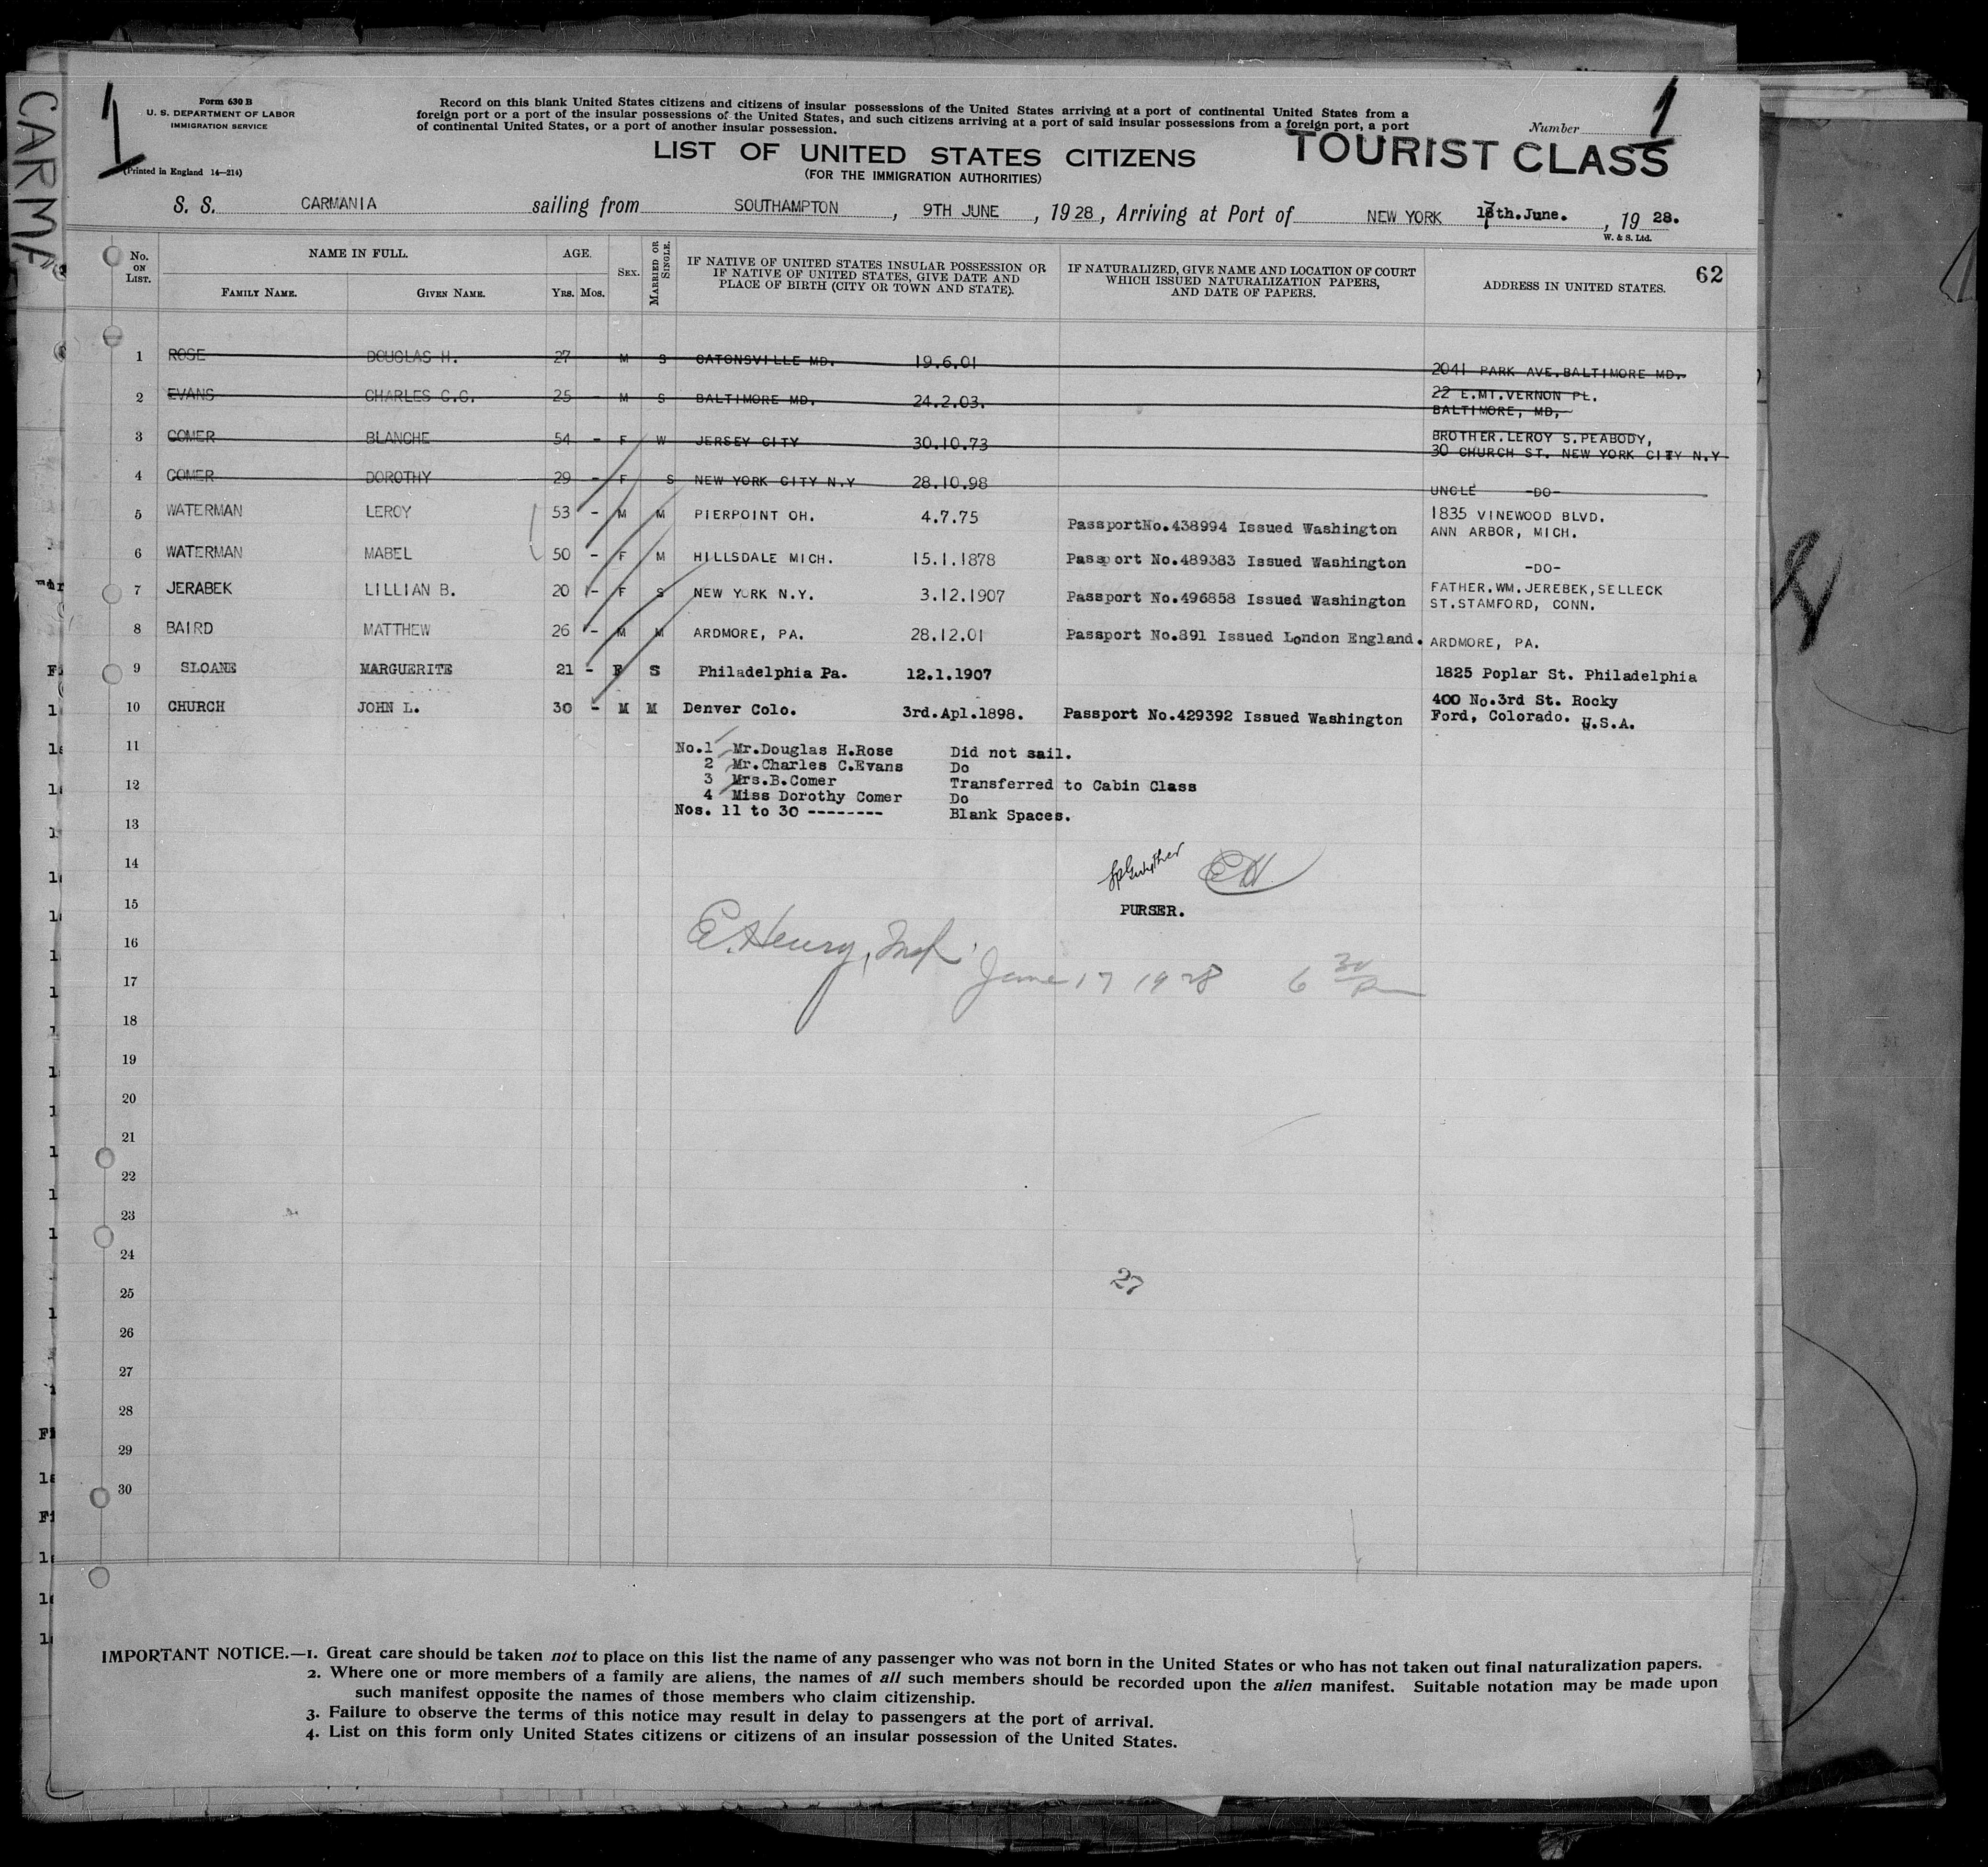 CARMA
1
Form 630 B
U. S. DEPARTMENT OF LABOR
IMMIGRATION SERVICE
(Printed in England 14—214)
Record on this blank United States citizens and citizens of insular possessions of the United States arriving at a port of continental United States from a
foreign port or a port of the insular possessions of the United States, and such citizens arriving at a port of said insular possessions from a foreign port, a port
of continental United States, or a port of another insular possession.
Number 1
LIST OF UNITED STATES CITIZENS
TOURIST CLASS
(FOR THE IMMIGRATION AUTHORITIES)
S. S. CARMANIA sailing from SOUTHAMPTON, 9TH JUNE, 1928, Arriving at Port of NEW YORK 17th.June., 19 28.
W. & S. Ltd.
No. ON LIST. NAME IN FULL. FAMILY NAME. GIVEN NAME. AGE. YRS. MOS. SEX. MARRIED OR SINGLE.
IF NATIVE OF UNITED STATES INSULAR POSSESSION OR
IF NATIVE OF UNITED STATES, GIVE DATE AND
PLACE OF BIRTH (CITY OR TOWN AND STATE).
IF NATURALIZED, GIVE NAME AND LOCATION OF COURT
WHICH ISSUED NATURALIZATION PAPERS,
AND DATE OF PAPERS.
ADDRESS IN UNITED STATES.
62
1 ROSE DOUGLAS H. 27 M S CATONSVILLE MD. 19.6.01 2041 PARK AVE.BALTIMORE MD.
2 EVANS CHARLES C.C. 25 - M S BALTIMORE MD. 24.2.03. 22 E.MT.VERNON PL.
BALTIMORE, MD,
3 COMER BLANCHE 54 - F W JERSEY CITY 30.10.73 BROTHER.LEROY S.PEABODY,
30 CHURCH ST. NEW YORK CITY N.Y
4 COMER DOROTHY 29 - F S NEW YORK CITY N.Y 28.10.98 UNCLE -DO-
5 WATERMAN LEROY 53 - M M PIERPOINT OH. 4.7.75 PassportNo.438994 Issued Washington 1835 VINEWOOD BLVD.
ANN ARBOR, MICH.
6 WATERMAN MABEL 50 - F M HILLSDALE MICH. 15.1.1878 Passport No.489383 Issued Washington -DO-
7 JERABEK LILLIAN B. 20 - F S NEW YORK N.Y. 3.12.1907 Passport No.496858 Issued Washington FATHER.WM.JEREBEK,SELLECK
ST.STAMFORD, CONN.
8 BAIRD MATTHEW 26 - M M ARDMORE, PA. 28.12.01 Passport No.891 Issued London England. ARDMORE, PA.
9 SLOANE MARGUERITE 21 - F S Philadelphia Pa. 12.1.1907 1825 Poplar St. Philadelphia
10 CHURCH JOHN L. 30 - M M Denver Colo. 3rd.Apl.1898. Passport No.429392 Issued Washington 400 No.3rd St. Rocky
Ford, Colorado. U.S.A.
11
No.1 Mr.Douglas H.Rose Did not sail.
2 Mr.Charles C.Evans Do
12
3 Mrs.B.Comer Transferred to Cabin Class
4 Miss Dorothy Comer Do
Nos. 11 to 30 -------- Blank Spaces.
13
14
EH
15
PURSER.
16
E. Henry, Insp.
17
June 17 1928 6 30 Pm
18
19
20
21
22
23
24
25
27
26
27
28
29
30
IMPORTANT NOTICE.—1. Great care should be taken not to place on this list the name of any passenger who was not born in the United States or who has not taken out final naturalization papers.
2. Where one or more members of a family are aliens, the names of all such members should be recorded upon the alien manifest. Suitable notation may be made upon
such manifest opposite the names of those members who claim citizenship.
3. Failure to observe the terms of this notice may result in delay to passengers at the port of arrival.
4. List on this form only United States citizens or citizens of an insular possession of the United States.